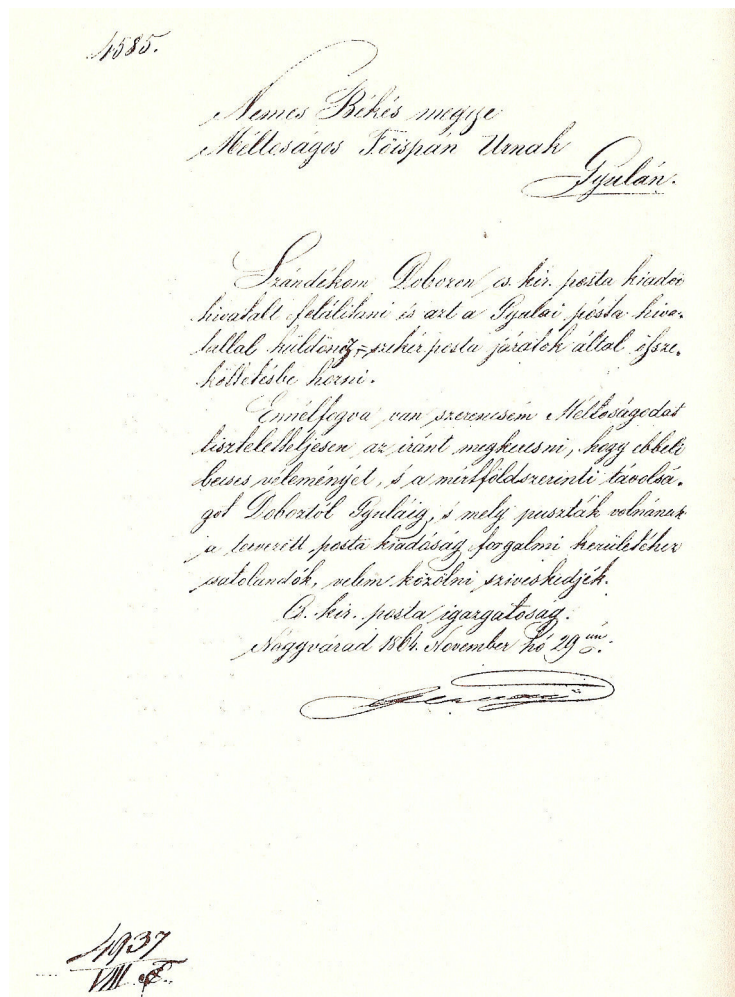 4585.
Nemes Békés megye
Méltoságos Főispán Urnak
Gyulán.
Szándékom Dobozon cs. kir. posta kiadói
hivatalt felálitani és azt a Gyulai pósta hiva-
tallal küldöncz-szekér posta járatok által öszsze-
költetésbe hozni.
Ennélfogva van szerencsém Méltoságodat
tiszteletteljesen az iránt megkeresni, hogy ebbeli
becses véleményét, s a mértföldszerinti távolsá-
got Doboztól Gyuláig, s mely puszták volnának
a tervezett posta kiadóság forgalmi kerületéhez
csatolandók, velem közölni sziveskedjék.
Cs. kir. posta igazgatoság.
Nagyvárad 1864. November hó 29 én.
4937
VIII